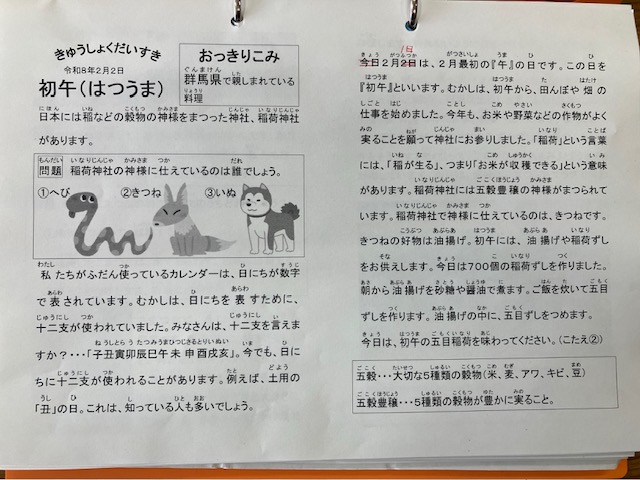 きゅうしょくだいすき
令和8年2月2日
初午(はつうま)
おっきりこみ
群馬県で親しまれている
料理
日本には稲などの穀物の神様をまつった神社、稲荷神社
があります。
問題 稲荷神社の神様に仕えているのは誰でしょう。
①へび ②きつね ③いぬ
私たちがふだん使っているカレンダーは、日にちが数字
で表されています。むかしは、日にちを表すために、
十二支が使われていました。みなさんは、十二支を言えま
すか?・・・「子丑寅卯辰巳午未申酉戌亥」。今でも、日に
ちに十二支が使われることがあります。例えば、土用の
「丑」の日。これは、知っている人も多いでしょう。
1日
今日2月2日は、2月最初の『午』の日です。この日を
『初午』といいます。むかしは、初午から、田んぼや畑の
仕事を始めました。今年も、お米や野菜などの作物がよく
実ることを願って神社にお参りしました。「稲荷」という言葉
には、「稲が生る」、つまり「お米が収穫できる」という意味
があります。稲荷神社には五穀豊穣の神様がまつられて
います。稲荷神社で神様に仕えているのは、きつねです。
きつねの好物は油揚げ。初午には、油揚げや稲荷ずし
をお供えします。今日は700個の稲荷ずしを作りました。
朝から油揚げを砂糖や醤油で煮ます。ご飯を炊いて五目
ずしを作ります。油揚げの中に、五目ずしをつめます。
今日は、初午の五目稲荷を味わってください。(こたえ②)
五穀・・・大切な5種類の穀物(米、麦、アワ、キビ、豆)
五穀豊穣・・・5種類の穀物が豊かに実ること。